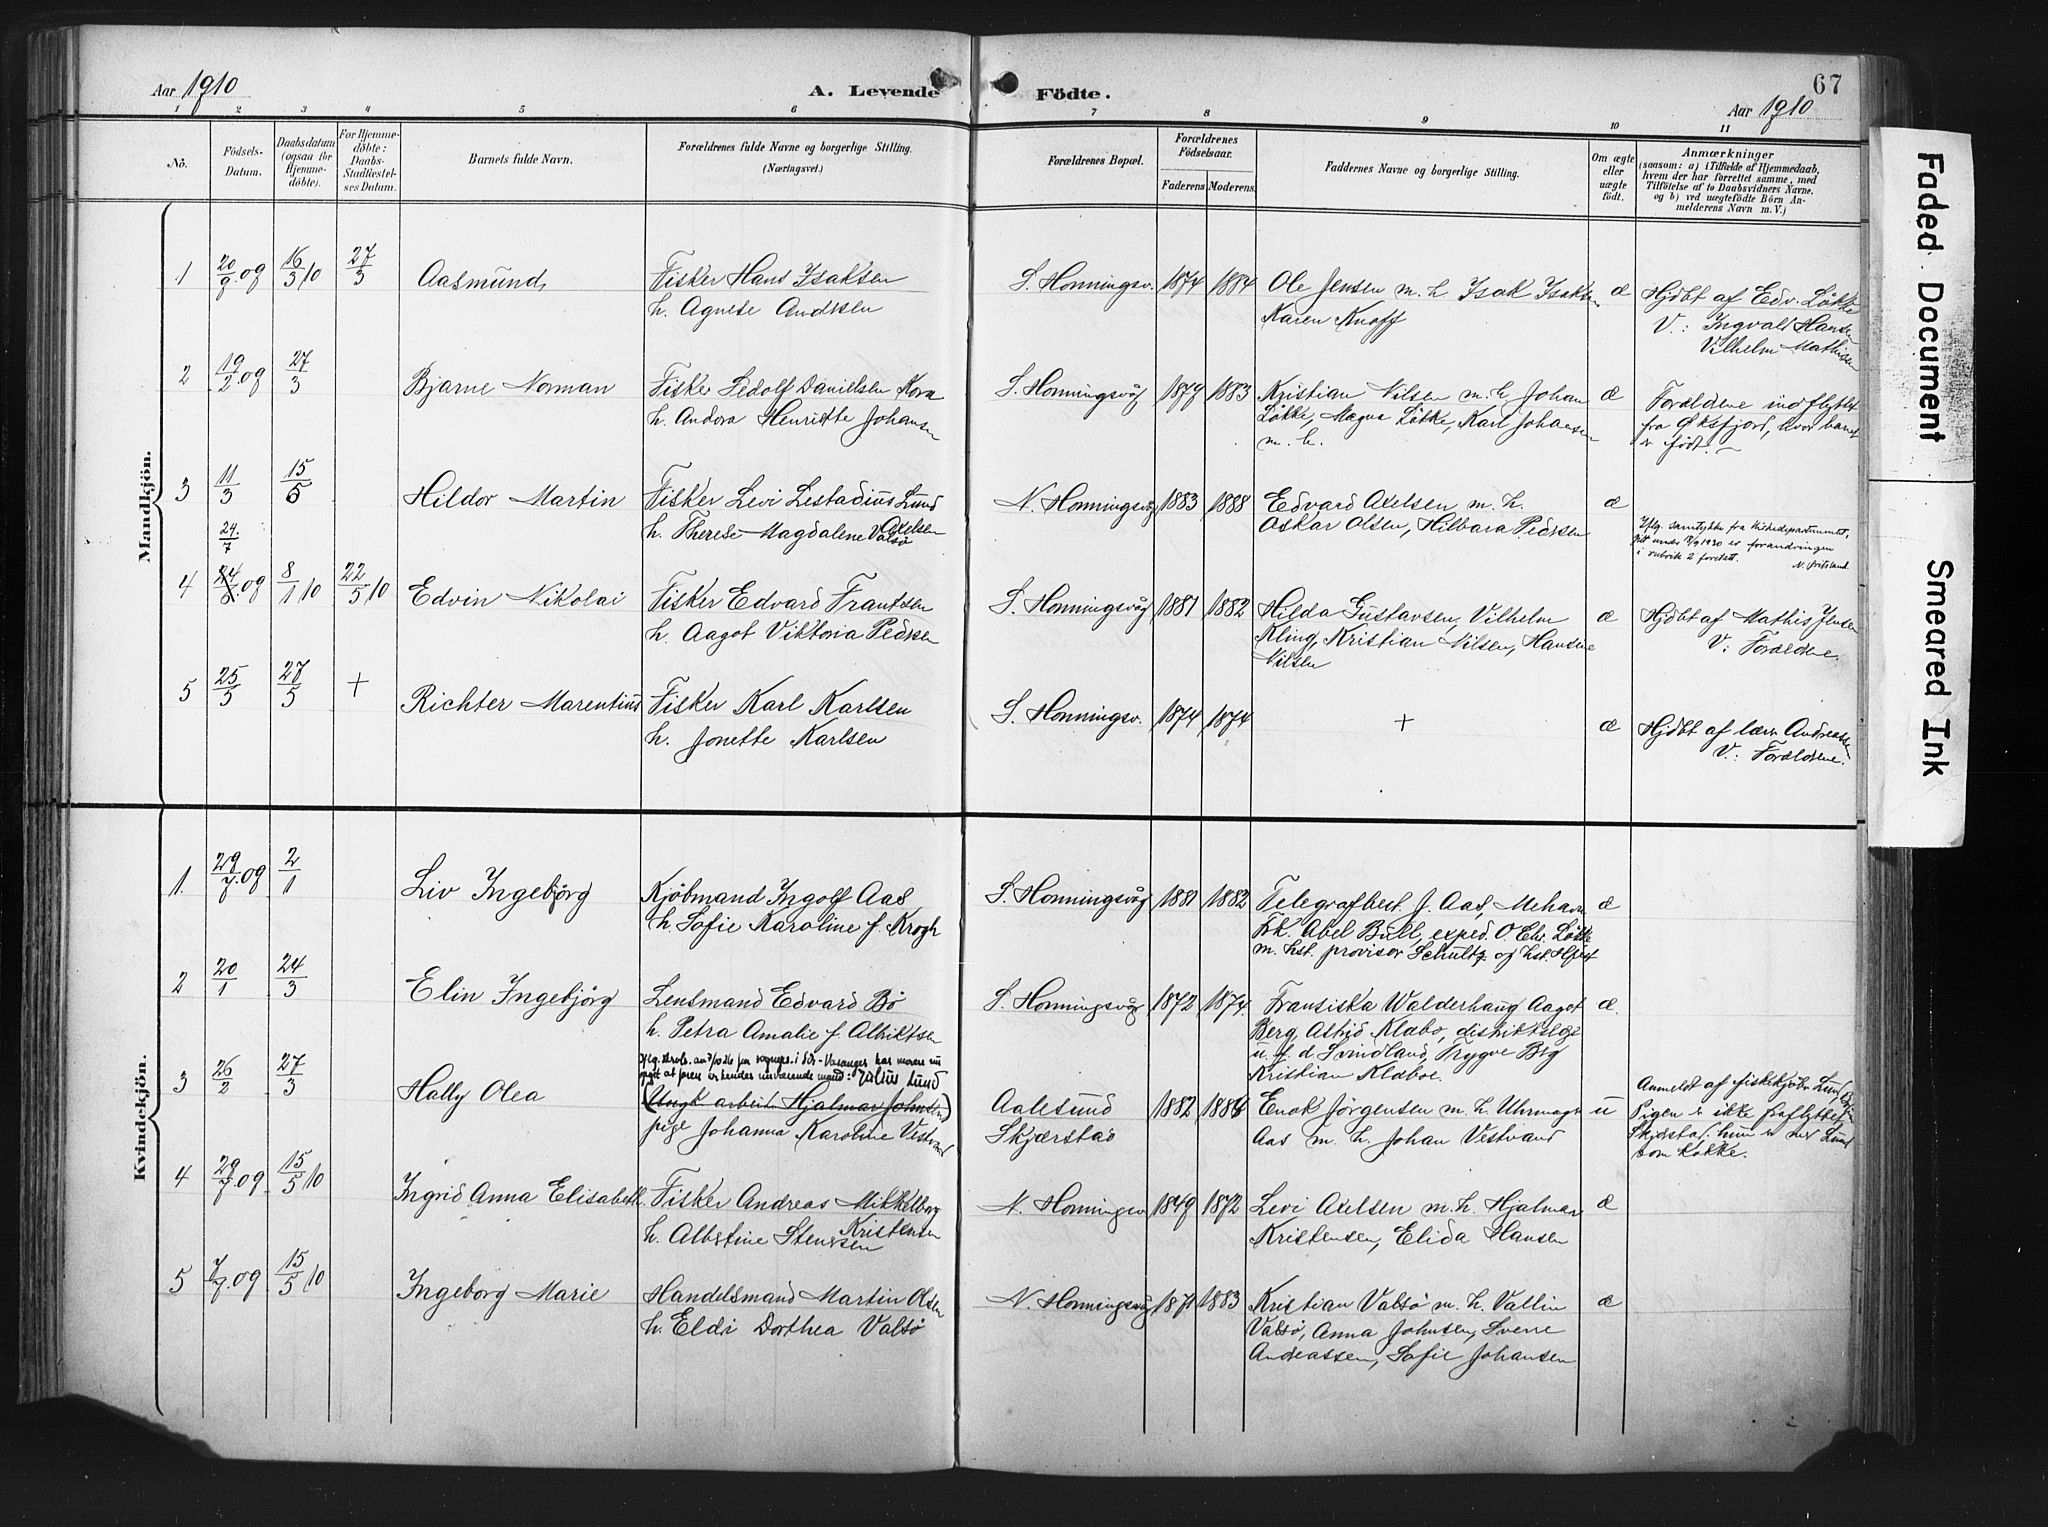 Aar 1910
A. Levende Födte.
67
Aar 1910
1 2 3 4 5 6 7 8 9 10 11
No.
Födsels-Datum.
Daabsdatum (ogsaa for Hjemme-döbte).
For Hjemme-döbte: Daabs-Stadfæstel-ses Datum.
Barnets fulde Navn.
Forældrenes fulde Navne og borgerlige Stilling.
(Næringsvei.)
Forældrenes Bopæl.
Forældrenes Födselsaar.
Faderens. Moderens.
Faddernes Navne og borgerlige Stilling.
Om ægte eller uægte födt.
Anmærkninger
(saasom: a) i Tilfælde af Hjemmedaab,
hvem der har forrettet samme, med
Tilföielse af to Daabsvidners Navne.
og b) ved uægtefödte Börn An-
melderens Navn m. V.)
Mandkjön.
1 20/9.09 16/3 10 27/3 Aasmund, Fisker Hans Isaksen S. Honningsv. 1874 1884 Ole Jensen m. h. Isak Isaksen æ Hjdbt af Edv. Løkke
h. Agnese Andersen Karen Knoff V: Ingvald Hansen
Vilhelm Mathisen
2 19/2.09 27/3 Bjarne Norman Fisker Sedolf Danielsen Kora S. Honningsvåg 1879 1883 Kristian Nilsen m. h. Johan æ Forældrene indflyttet
h. Andora Henriette Johansen Løkke, Magna Løkke, Karl Johansen fra Øksfjord, hvor barnet
m. h. er født.
3 11/3 15/5 Hildor Martin Fisker Levi Lestadius Lund N. Honningsvåg 1883 1888 Edvard Axelsen m. h. æ
h. Therese Magdalene Valsø Axelsen Oskar Olsen, Hilbara Pedersen
24/7
Iflg. samtykke fra Kirkedepartementet,
i rubrik 2 foretatt.
4 24/8.09 8/1 10 22/5 10 Edvin Nikolai Fisker Edvard Frantsen S. Honningsvåg 1881 1882 Hilda Gustavsen, Vilhelm æ Hjdbt af Mathis Jensen
h. Aagot Viktoria Pedersen Kling, Kristian Nilsen, Hansine V: Forældrene.
Nilsen
5 25/5 27/5 + Richter Marentius Fisker Karl Karlsen S. Honningsv. 1874 1874 + æ Hjdbt af lærer Andreassen
h. Jonette Karlsen V: Forældrene.
Kvindekjön.
1. 29/7.09 2/1 Liv Ingebjørg Kjøbmand Ingolf Aas S. Honningsvåg 1881 1882 Telegrafbest. J. Aas, Mehavn æ
h. Sofie Karoline f. Krogh Frk. Abel Bull, exped. O. Chr. Løkke
m. hst. provisor Schultz og hst.
2 20/1 24/3 Elin Ingebjørg Lensmand Edvard Bö S. Honningsvåg 1872 1874 Fransiska Walderhaug Aagot æ.
h. Petra Amalie f. Albriktsen Berg, Astrid Klæbo, distriktslæge
u. f. d. Svindland, Trygve Big
Kristian Klæboe.
3 26/2 27/3 Hally Olea
gvet at faren er hendes nuværende mand: Julius Lund
(Ungk. arbeider Hjalmar Johnsen) Aalesund 1882 1886 Enok Jørgensen m. h. Uhrmager u Anmeldt af fiskekjøber Lund
pige Johanna Karoline Vestvand Skjærstad Aas m. h. Johan Vestvand Pigen er ikke fraflyttet
Skjerstad, hun er med Lund
som kokke.
4 29/7.09 15/5 10 Ingrid Anna Elisabeth. Fisker Andreas Mikkelborg Kristensen N. Honningsv 1849 1872 Levi Axelsen m. h. Hjalmar æ
h. Albertine Stenersen Kristensen, Elida Hansen
5 7/7.09 15/5 10 Ingeborg Marie Handelsmand Martin Olsen N. Honningsvåg 1871 1883 Kristian Valsø m. h. Vallin æ
h. Eldi Dorthea Valsø Valsø, Anna Johnsen, Sverre
Andreassen, Sofie Johansen
Faded Document
Smeared Ink